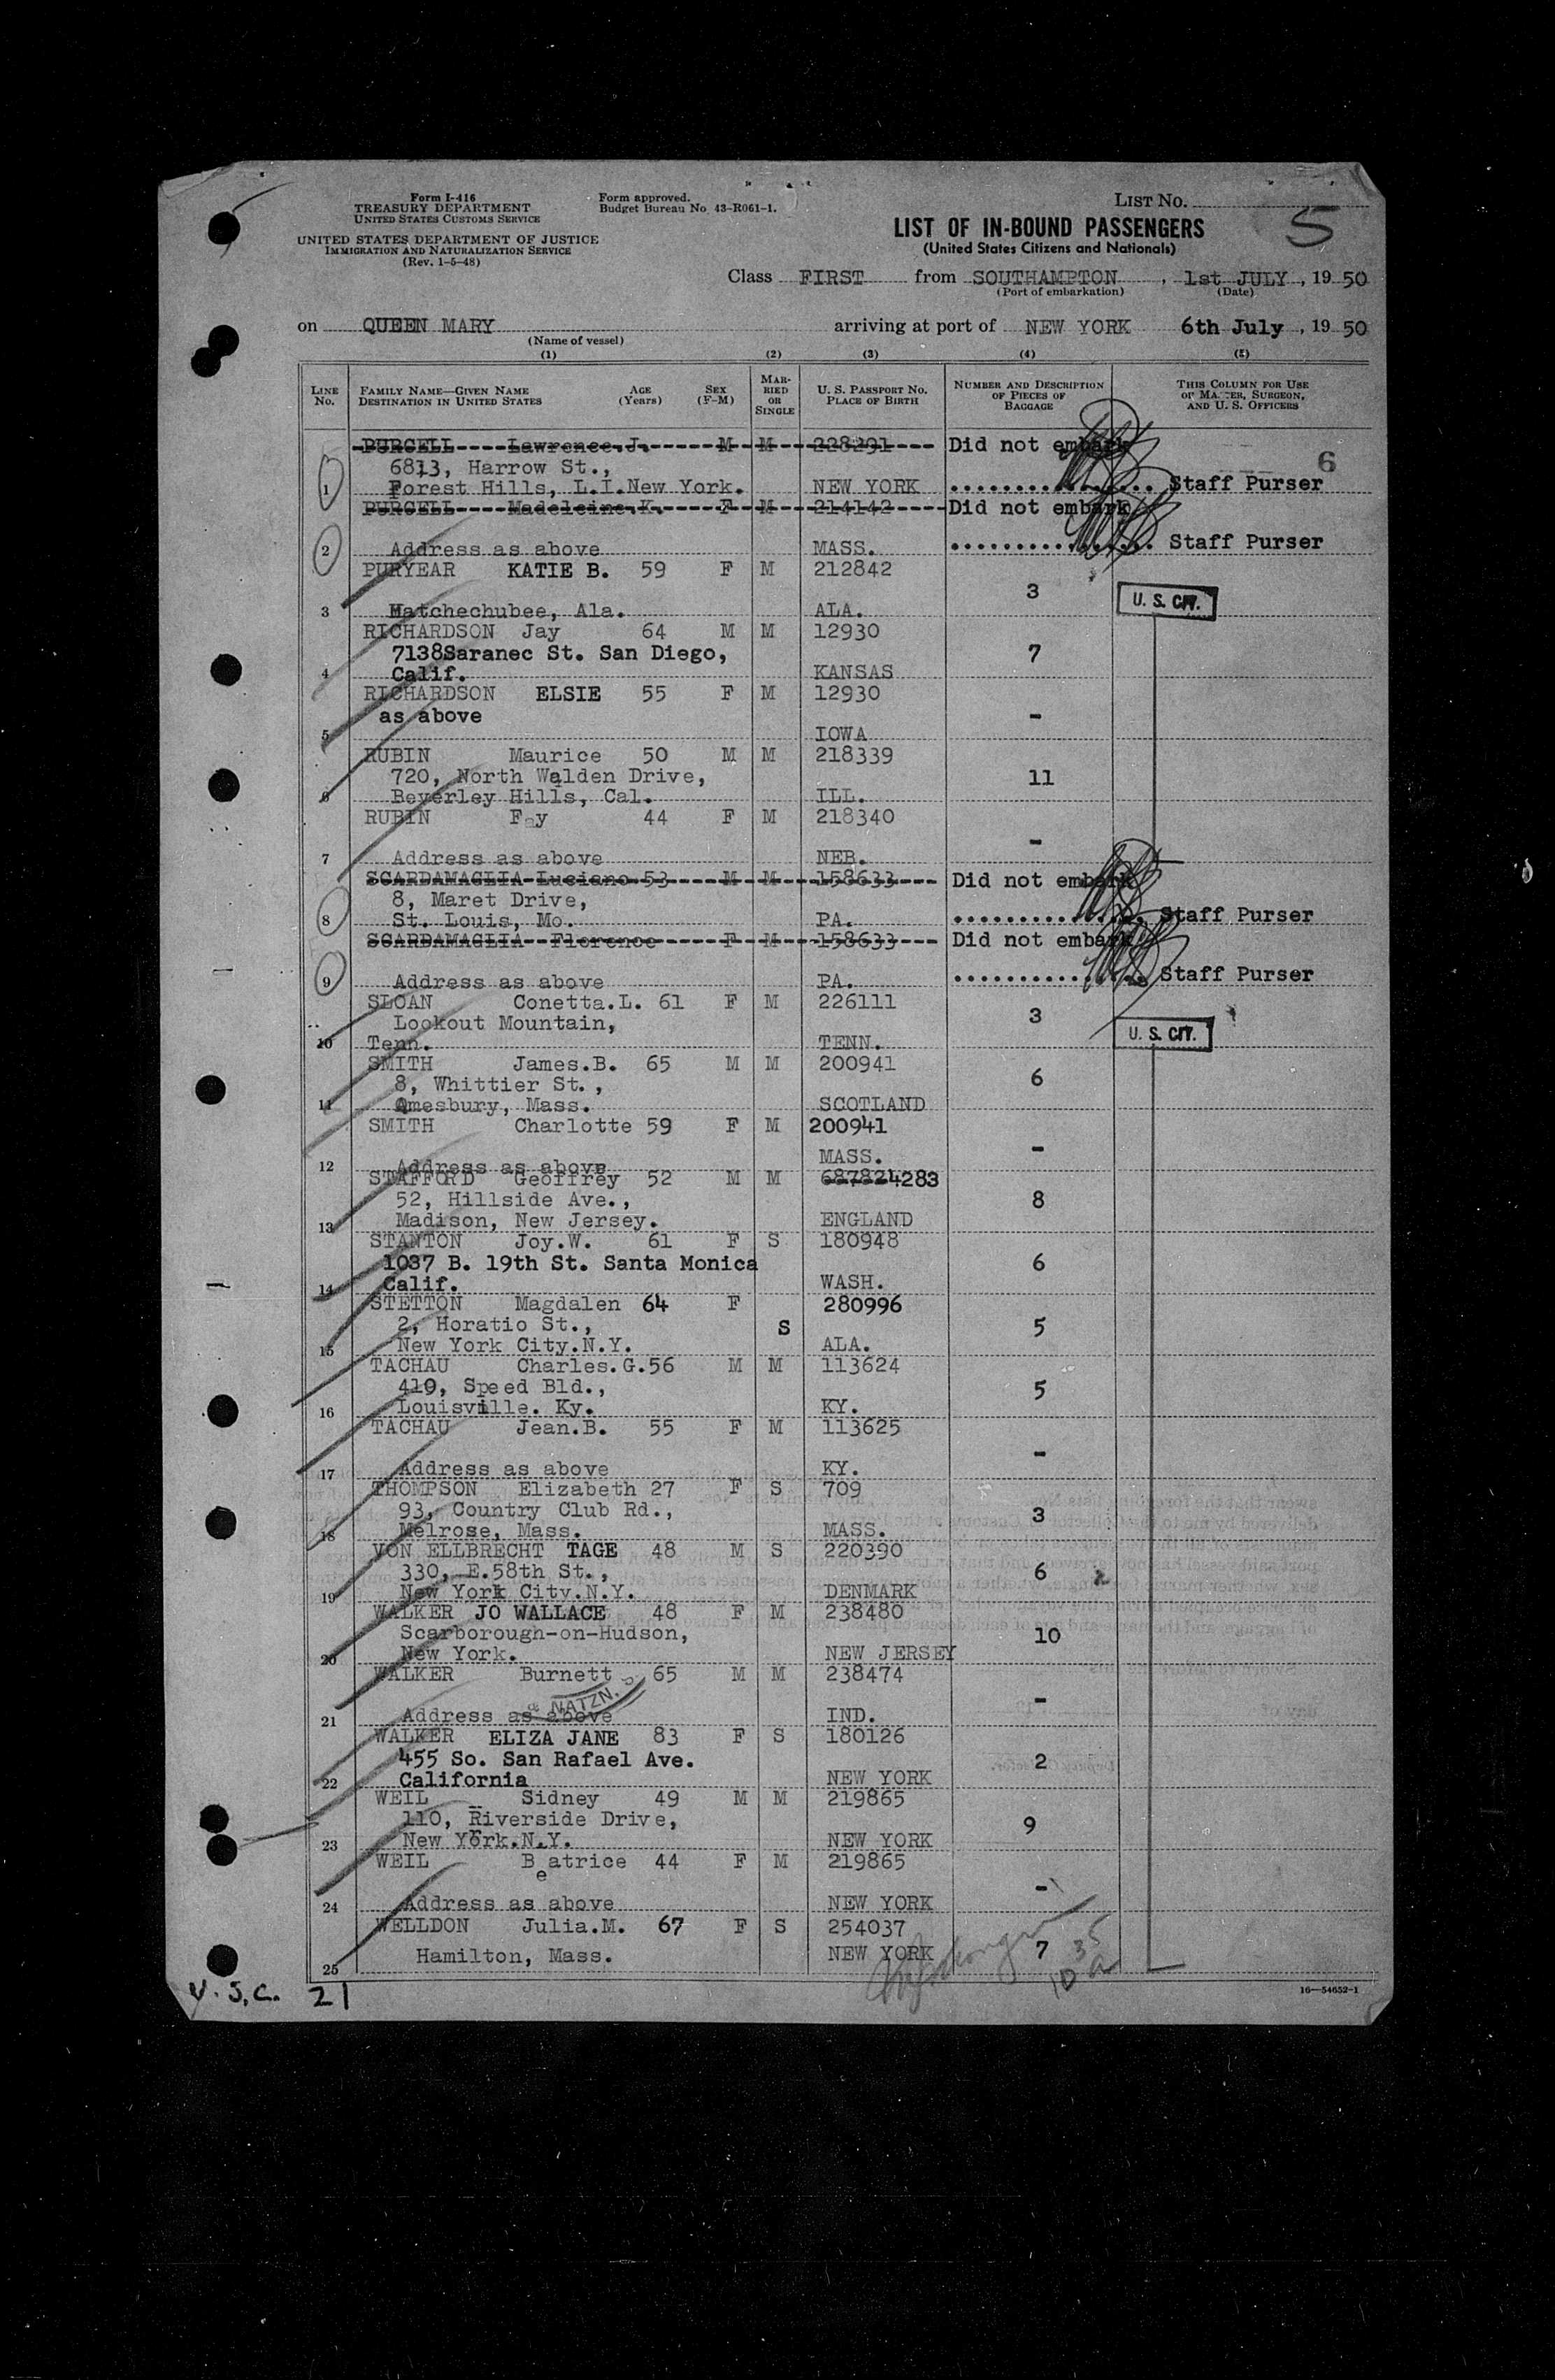 Form I-416
TREASURY DEPARTMENT
UNITED STATES CUSTOMS SERVICE
UNITED STATES DEPARTMENT OF JUSTICE
IMMIGRATION AND NATURALIZATION SERVICE
(Rev. 1-5-48)
Form approved.
Budget Bureau No 43-R061-1.
LIST No.
5
LIST OF IN-BOUND PASSENGERS
(United States Citizens and Nationals)
Class FIRST from SOUTHAMPTON, 1st JULY, 19 50
(Port of embarkation) (Date)
on QUEEN MARY arriving at port of NEW YORK 6th July, 19 50
(Name of vessel)
(1) (2) (3) (4) (5)
LINE No. FAMILY NAME—GIVEN NAME DESTINATION IN UNITED STATES AGE (Years) SEX (F-M) MARRIED OR SINGLE U. S. PASSPORT No. PLACE OF BIRTH NUMBER AND DESCRIPTION OF PIECES OF BAGGAGE THIS COLUMN FOR USE OF MASTER, SURGEON, AND U. S. OFFICERS
PURCELL Lawrence.J. M M 228291 Did not embark
6813, Harrow St., 6
1 Forest Hills, L.I.New York. NEW YORK Staff Purser
PURCELL Madeleine.K. F M 214142 Did not embark
2 Address as above MASS. Staff Purser
PURYEAR KATIE B. 59 F M 212842
3 U. S. CIT.
3 Hatchechubee, Ala. ALA.
RICHARDSON Jay 64 M M 12930
7138Saranec St. San Diego, 7
4 Calif. KANSAS
RICHARDSON ELSIE 55 F M 12930
as above -
5 IOWA
RUBIN Maurice 50 M M 218339
720, North Walden Drive, 11
6 Beverley Hills, Cal. ILL.
RUBIN Fay 44 F M 218340
-
7 Address as above NEB.
SCARDAMAGLIA Luciano 53 M M 158633 Did not embark
8, Maret Drive,
8 St. Louis, Mo. PA. Staff Purser
SCARDAMAGLIA Florence F M 158633 Did not embark
9 Address as above PA. Staff Purser
SLOAN Conetta.L. 61 F M 226111
Lookout Mountain, 3
10 Tenn. TENN. U. S. CIT.
SMITH James.B. 65 M M 200941
8, Whittier St., 6
11 Amesbury, Mass. SCOTLAND
SMITH Charlotte 59 F M 200941
-
12 Address as above MASS.
STAFFORD Geoffrey 52 M M 687824283
52, Hillside Ave., 8
13 Madison, New Jersey. ENGLAND
STANTON Joy.W. 61 F S 180948
1037 B. 19th St. Santa Monica 6
14 Calif. WASH.
STETTON Magdalen 64 F 280996
2, Horatio St., S 5
15 New York City.N.Y. ALA.
TACHAU Charles.G.56 M M 113624
419, Speed Bld., 5
16 Louisville. Ky. KY.
TACHAU Jean.B. 55 F M 113625
-
17 Address as above KY.
THOMPSON Elizabeth 27 F S 709
93, Country Club Rd., 3
18 Melrose, Mass. MASS.
VON ELLBRECHT TAGE 48 M S 220390
330, E.58th St., 6
19 New York City.N.Y. DENMARK
WALKER JO WALLACE 48 F M 238480
Scarborough-on-Hudson, 10
20 New York. NEW JERSEY
WALKER Burnett 65 M M 238474
NATZN. -
21 Address as above IND.
WALKER ELIZA JANE 83 F S 180126
455 So. San Rafael Ave. 2
22 California NEW YORK
WEIL Sidney 49 M M 219865
110, Riverside Drive, 9
23 New York.N.Y. NEW YORK
WEIL Beatrice 44 F M 219865
-
24 Address as above NEW YORK
WELLDON Julia.M. 67 F S 254037
25 Hamilton, Mass. NEW YORK 7
U.S.C. 21
16—54652-1